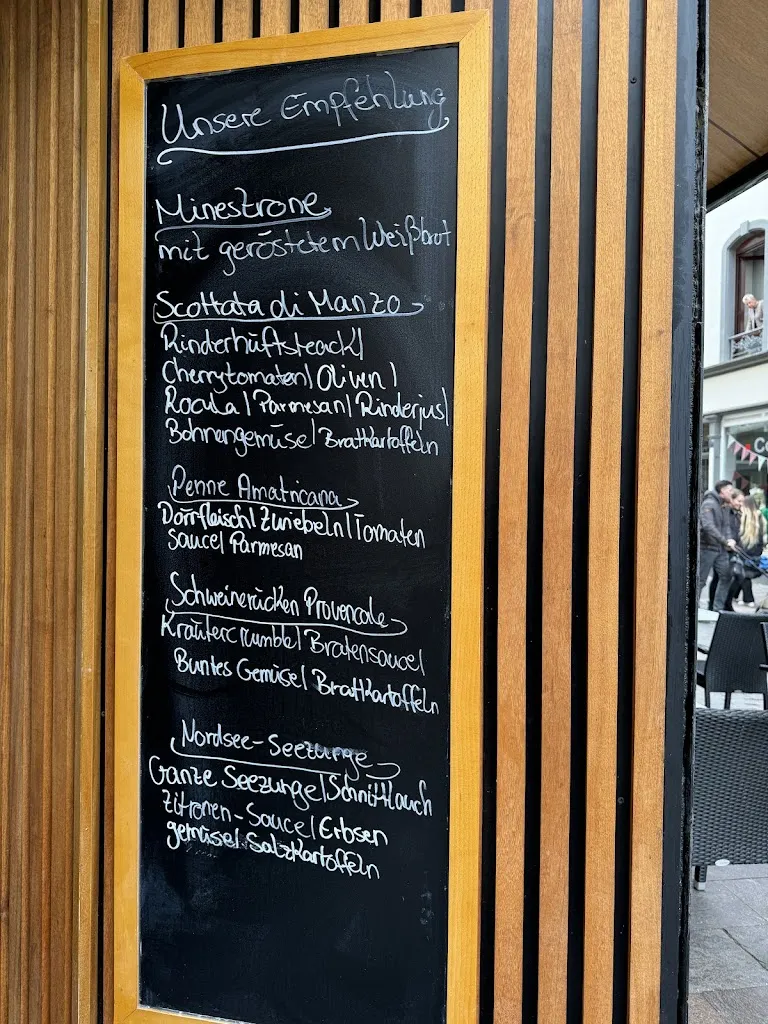 Unsere Empfehlung
Minestrone
mit geröstetem Weißbrot
Scottata di Manzo
Rinderhüftsteack|
Cherrytomaten| Oliven |
Rocula | Parmesan| Rinderjus|
Bohnengemüse| Bratkartoffeln
Penne Amatricana
Dörrfleisch| Zwiebeln| Tomaten
Sauce| Parmesan
Schweinerücken Provencale
Kräutercrumble| Bratensauce|
Buntes Gemüse| Bratkartoffeln
Nordsee-Seezunge
Ganze Seezunge| Schnittlauch
Zitronen-Sauce| Erbsen
gemüse| Salzkartoffeln